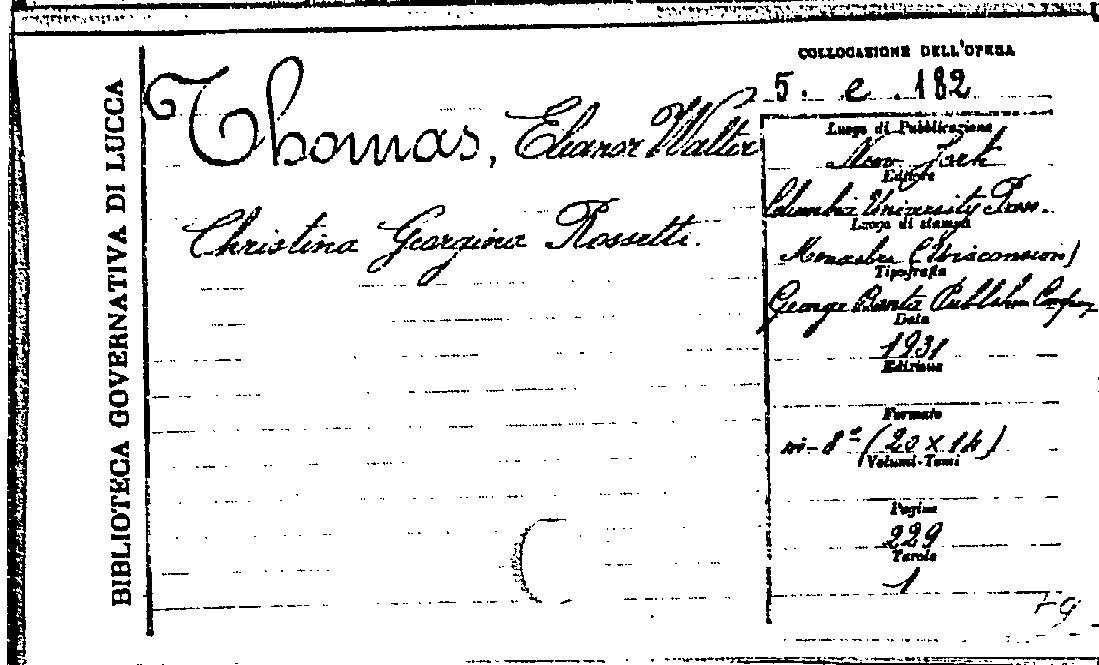 BIBLIOTECA GOVERNATIVA DI LUCCA
Thomas, Eleanor Walter
Christina Georgina Rossetti.
COLLOCAZIONE DELL'OPERA
5. e. 182
Luogo di Pubblicazione
New York
Editore
Columbia University Press.
Luogo di stampa
Menasha (Wisconsin)
Tipografia
George Banta Publishing Company
Data
1931
Edizione
Formato
in-8º (20 x 14)
Volumi-Tomi
Pagine
229
Tavole
1